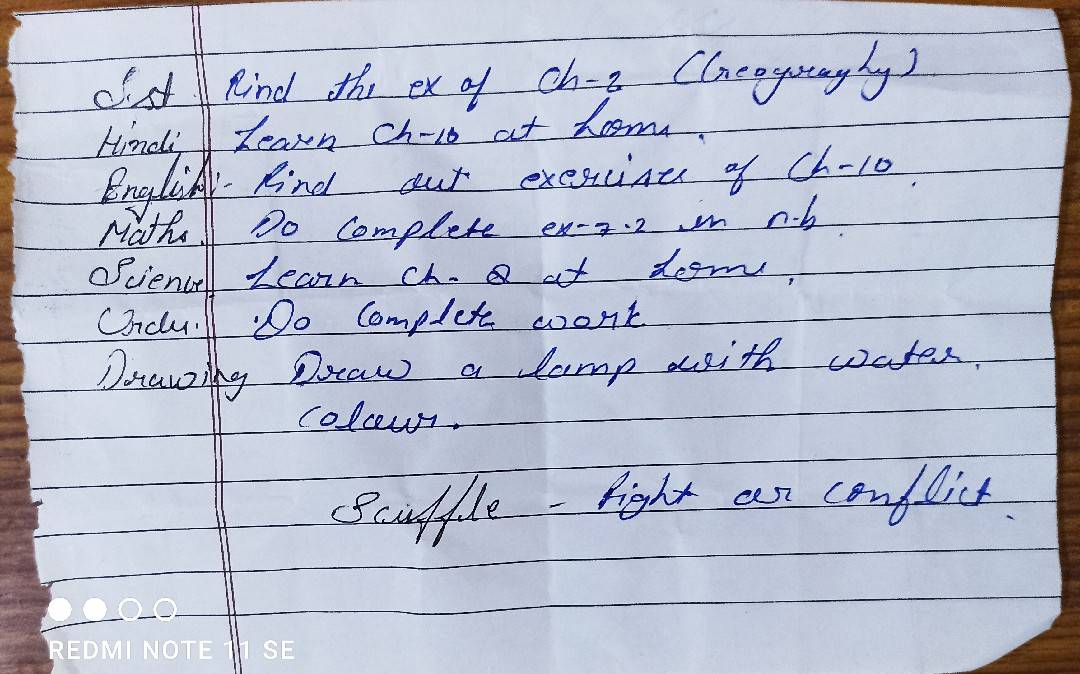 S.st Find the ex of Ch-2 (Geography)
Hindi Learn Ch-10 at home.
English:- Find out exercises of Ch-10.
Maths. Do Complete ex-7.2 in n.b.
Science Learn Ch-8 at home.
Urdu. Do Complete work
Drawing Draw a lamp with water
colour.
Scuffle - Fight or conflict.
REDMI NOTE 11 SE